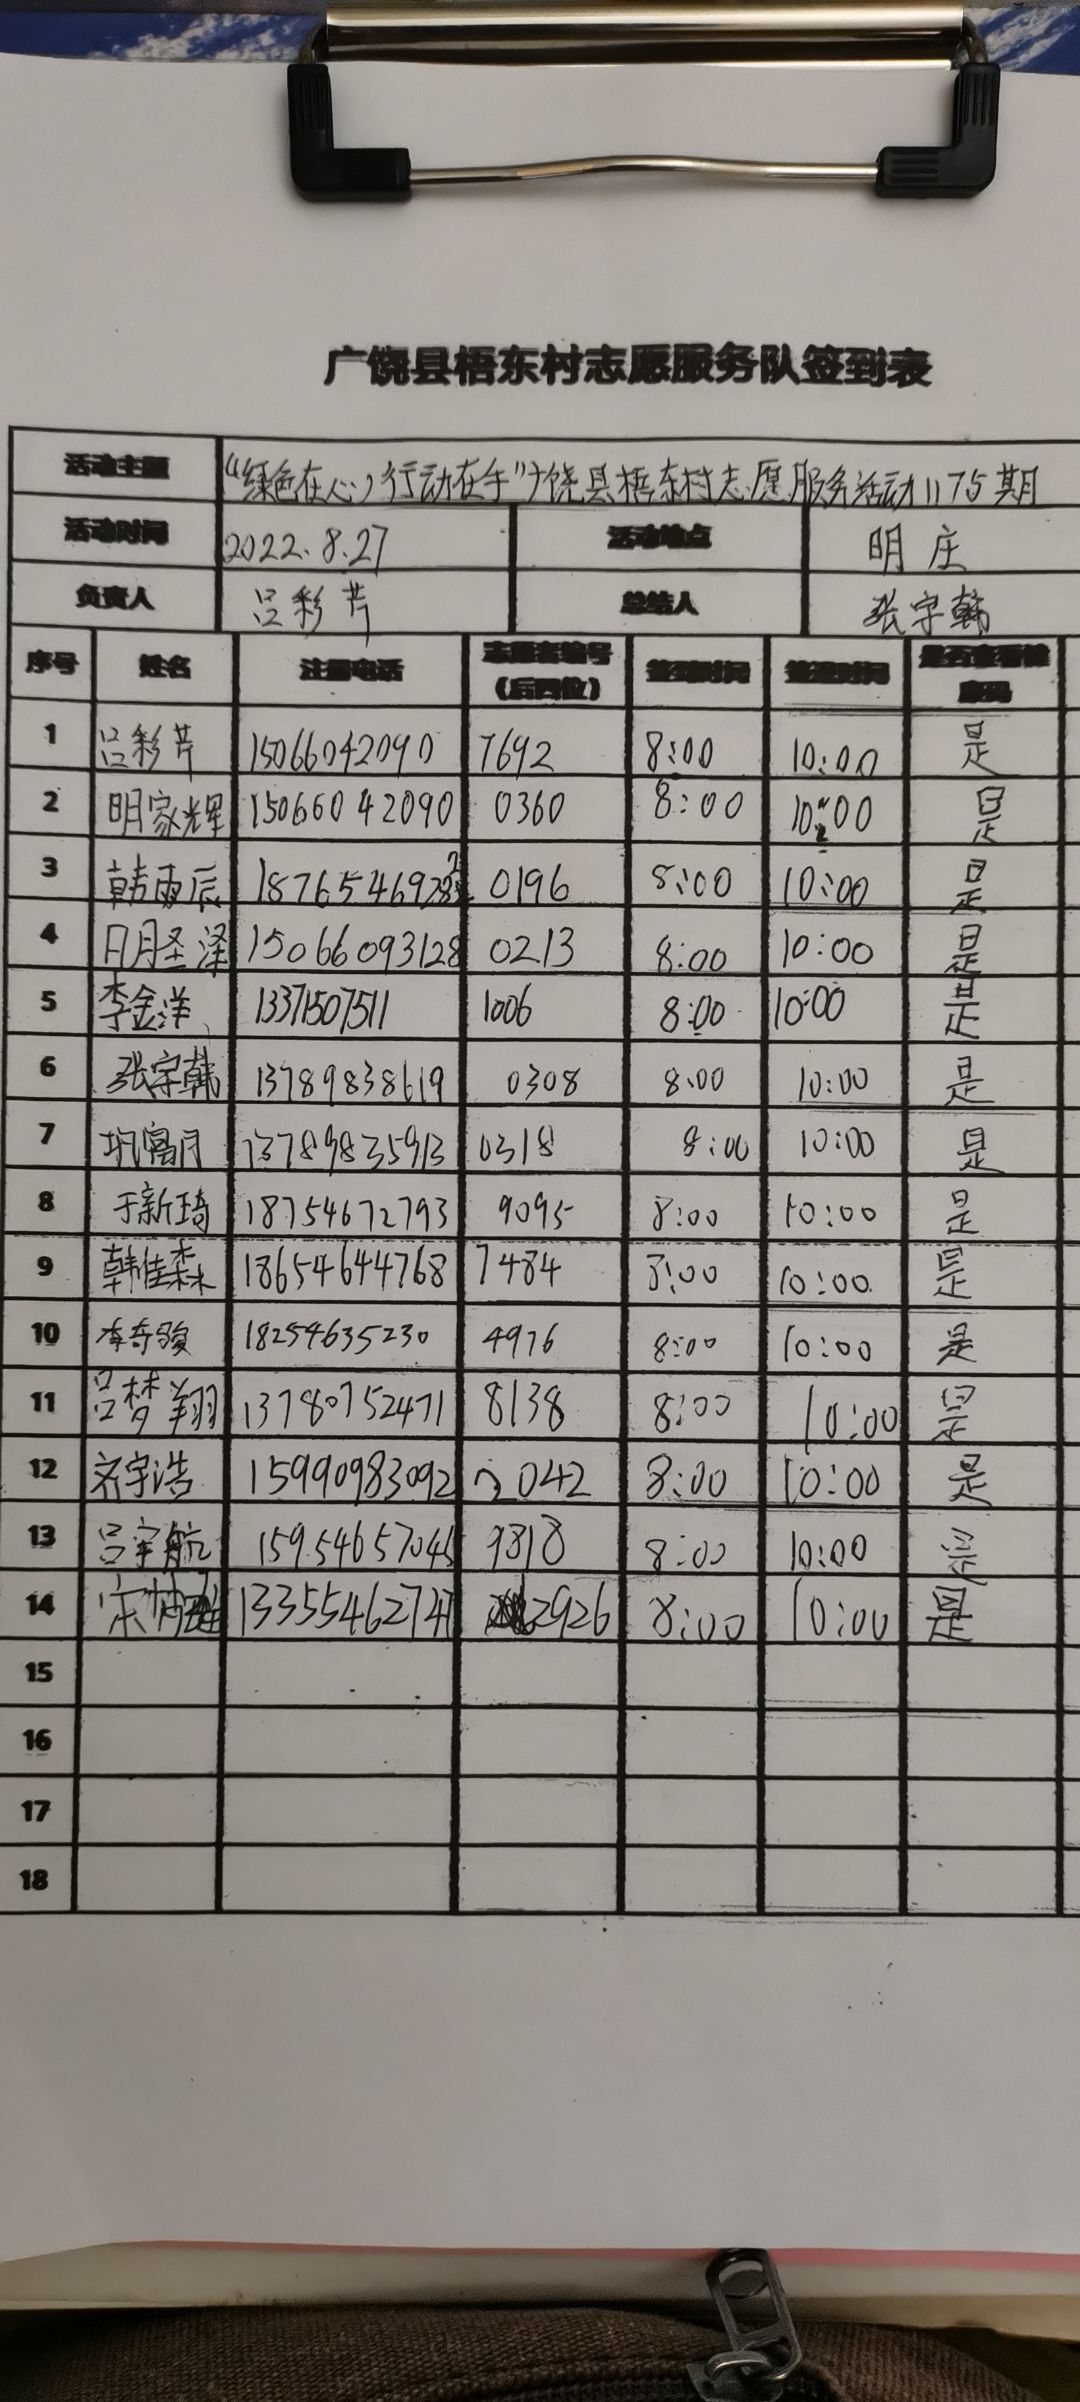 广饶县梧东村志愿服务队签到表
活动主题 “绿色在心,行动在手”广饶县梧东村志愿服务活动1175期
活动时间 2022.8.27 活动地点 明庄
负责人 吕彩芹 总结人 张宇韩
序号 姓名 注册电话 志愿者编号(后四位) 签到时间 签退时间 是否查看健康码
1 吕彩芹 15066042090 7692 8:00 10:00 是
2 明家辉 15066042090 0360 8:00 10:00 是
3 韩雨辰 0196 8:00 10:00 是
4 明圣泽 15066093128 0213 8:00 10:00 是
5 李金洋 13371507511 1006 8:00 10:00 是
6 张宇韩 13789838619 0308 8:00 10:00 是
7 13789835913 0318 8:00 10:00 是
8 于新琦 18754672793 9095 8:00 10:00 是
9 韩佳森 18654644768 7484 8:00 10:00 是
10 李奇骏 18254635230 4976 8:00 10:00 是
11 吕梦翔 13780752471 8138 8:00 10:00 是
12 齐宇浩 15990983092 2042 8:00 10:00 是
13 吕宇航 15954657045 9818 8:00 10:00 是
14 2926 8:00 10:00 是
15
16
17
18